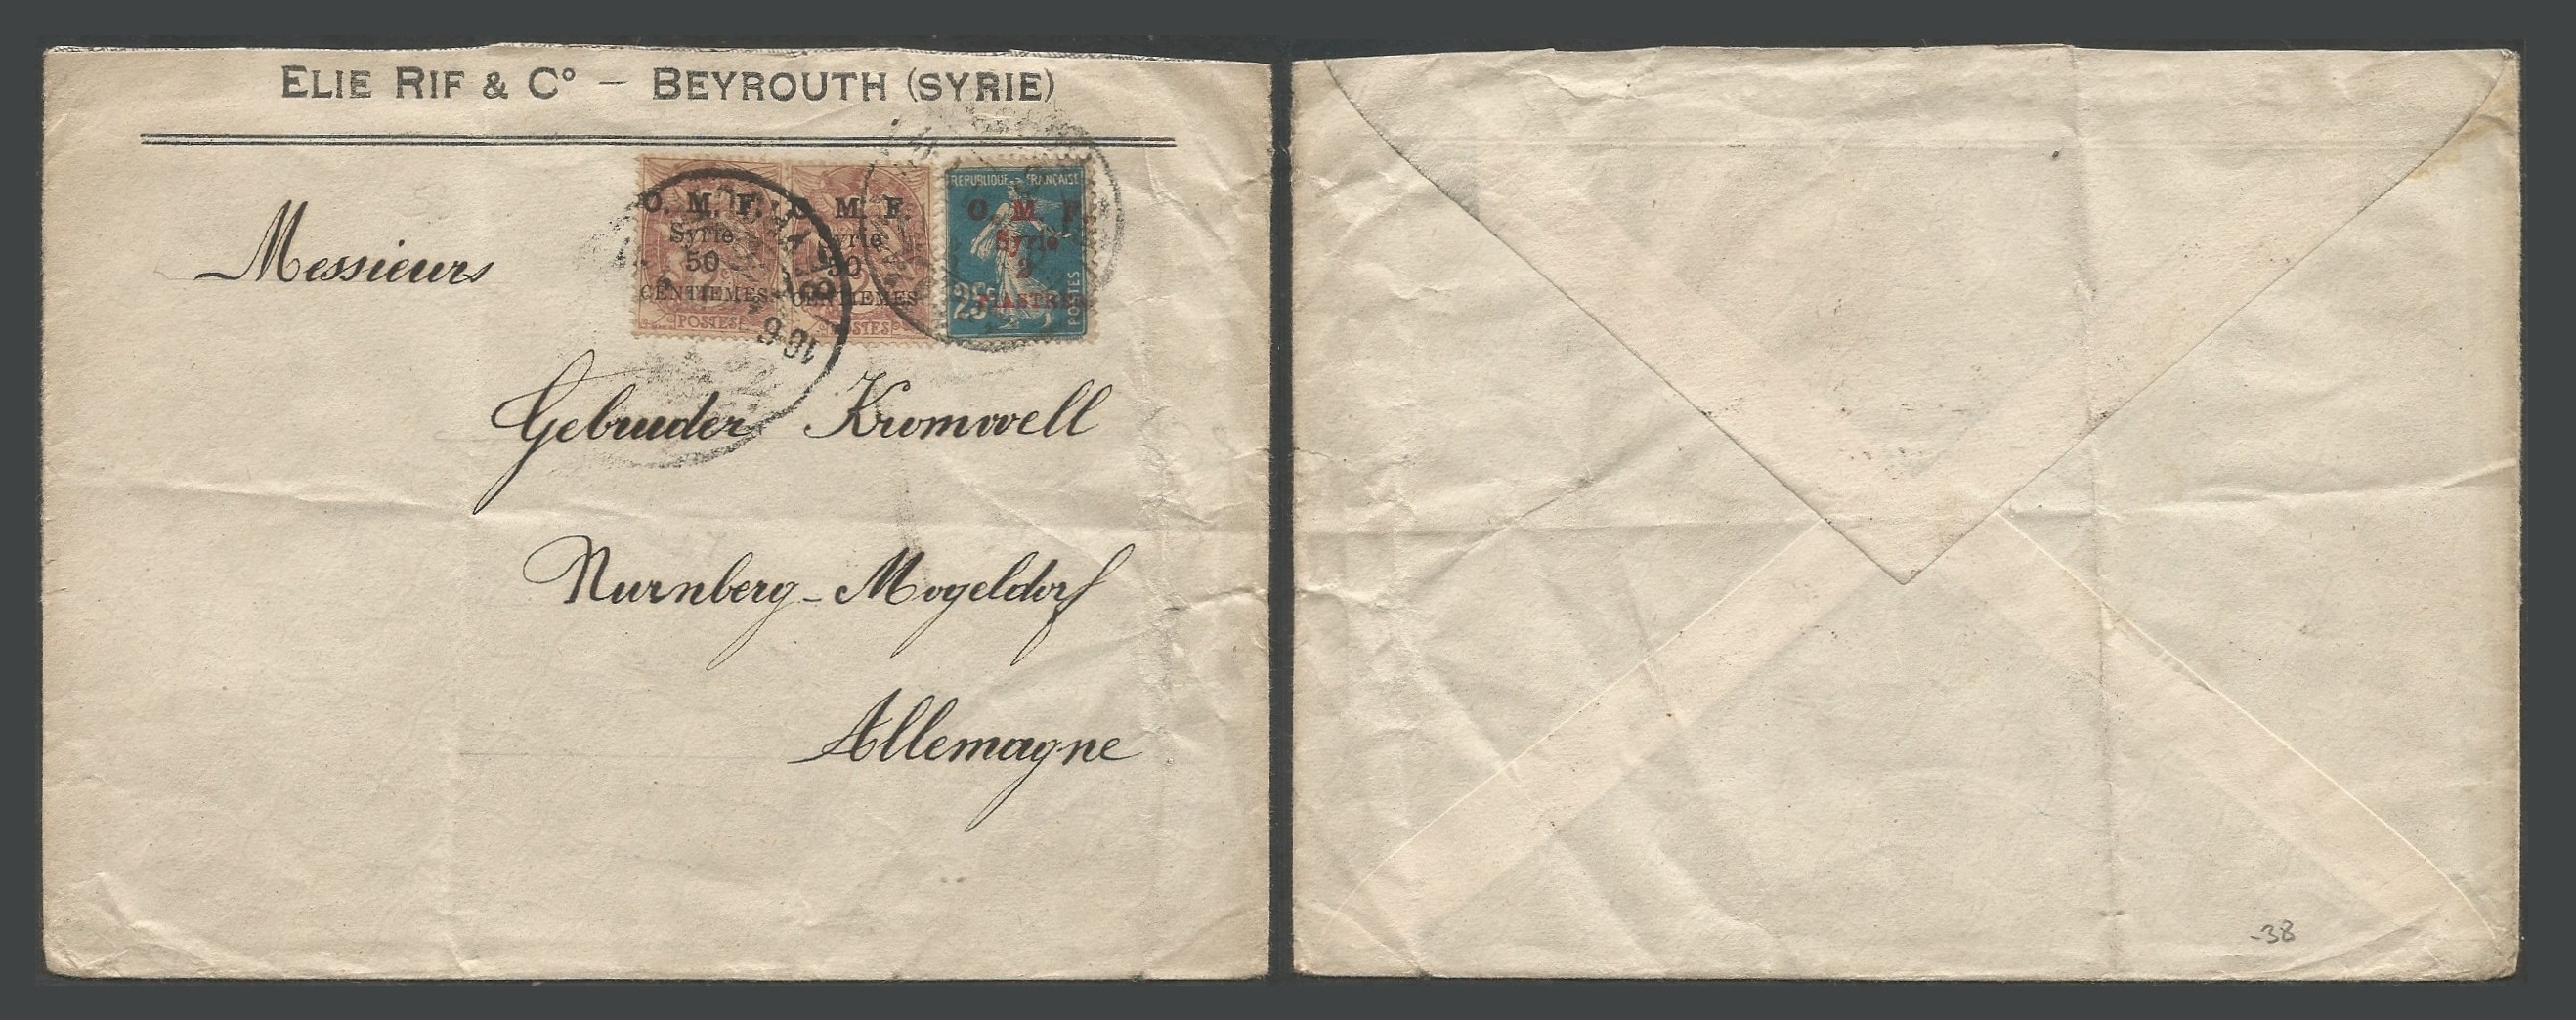 ELIE RIF & Cº – BEYROUTH (SYRIE)
Messieurs
O. M. F.
Syrie
50
CENTIEMES
POSTES
O. M. F.
Syrie
50
CENTIEMES
POSTES
REPUBLIQUE FRANÇAISE
O. M. F.
Syrie
2
PIASTRES
25c
POSTES
Gebruder Kromwell
Nurnberg - Mogeldorf
Allemagne
-38